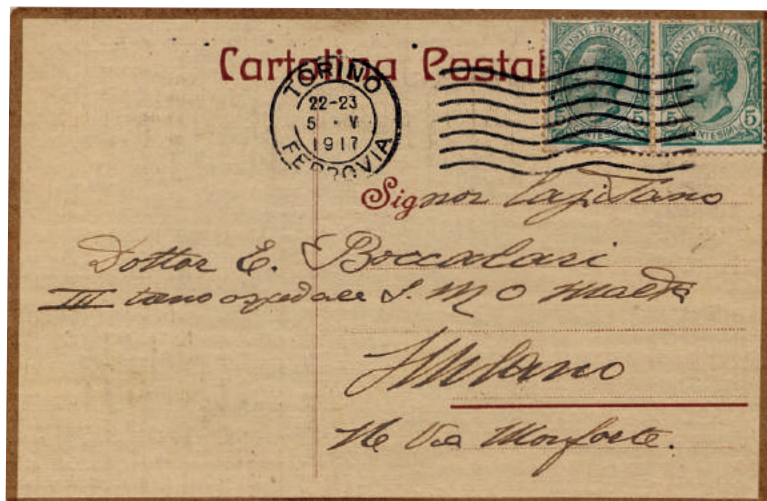 Cartolina Postal
TORINO
22-23
5 · V
1917
FERROVIA
POSTE ITALIANE
5 CENTESIMI 5
POSTE ITALIANE
5 CENTESIMI 5
Signor Capitano
Dottor E. Boccalari
III treno ospedale S. M O Malta
Milano
Via Monforte.